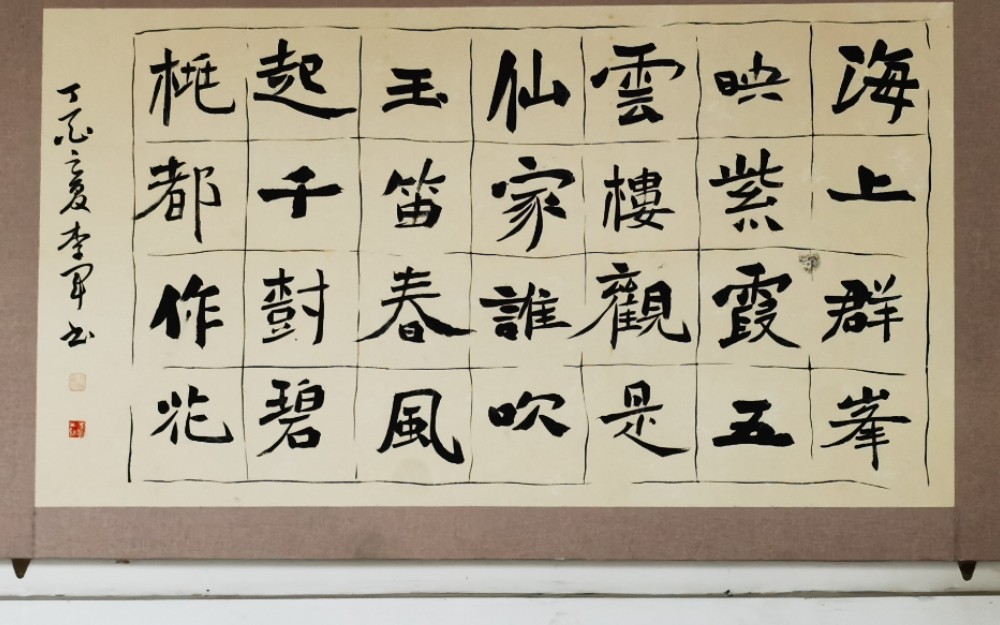 海上群峯
映紫霞五
雲樓觀是
仙家誰吹
玉笛春風
起千樹碧
桃都作花
丁酉之夏李军书